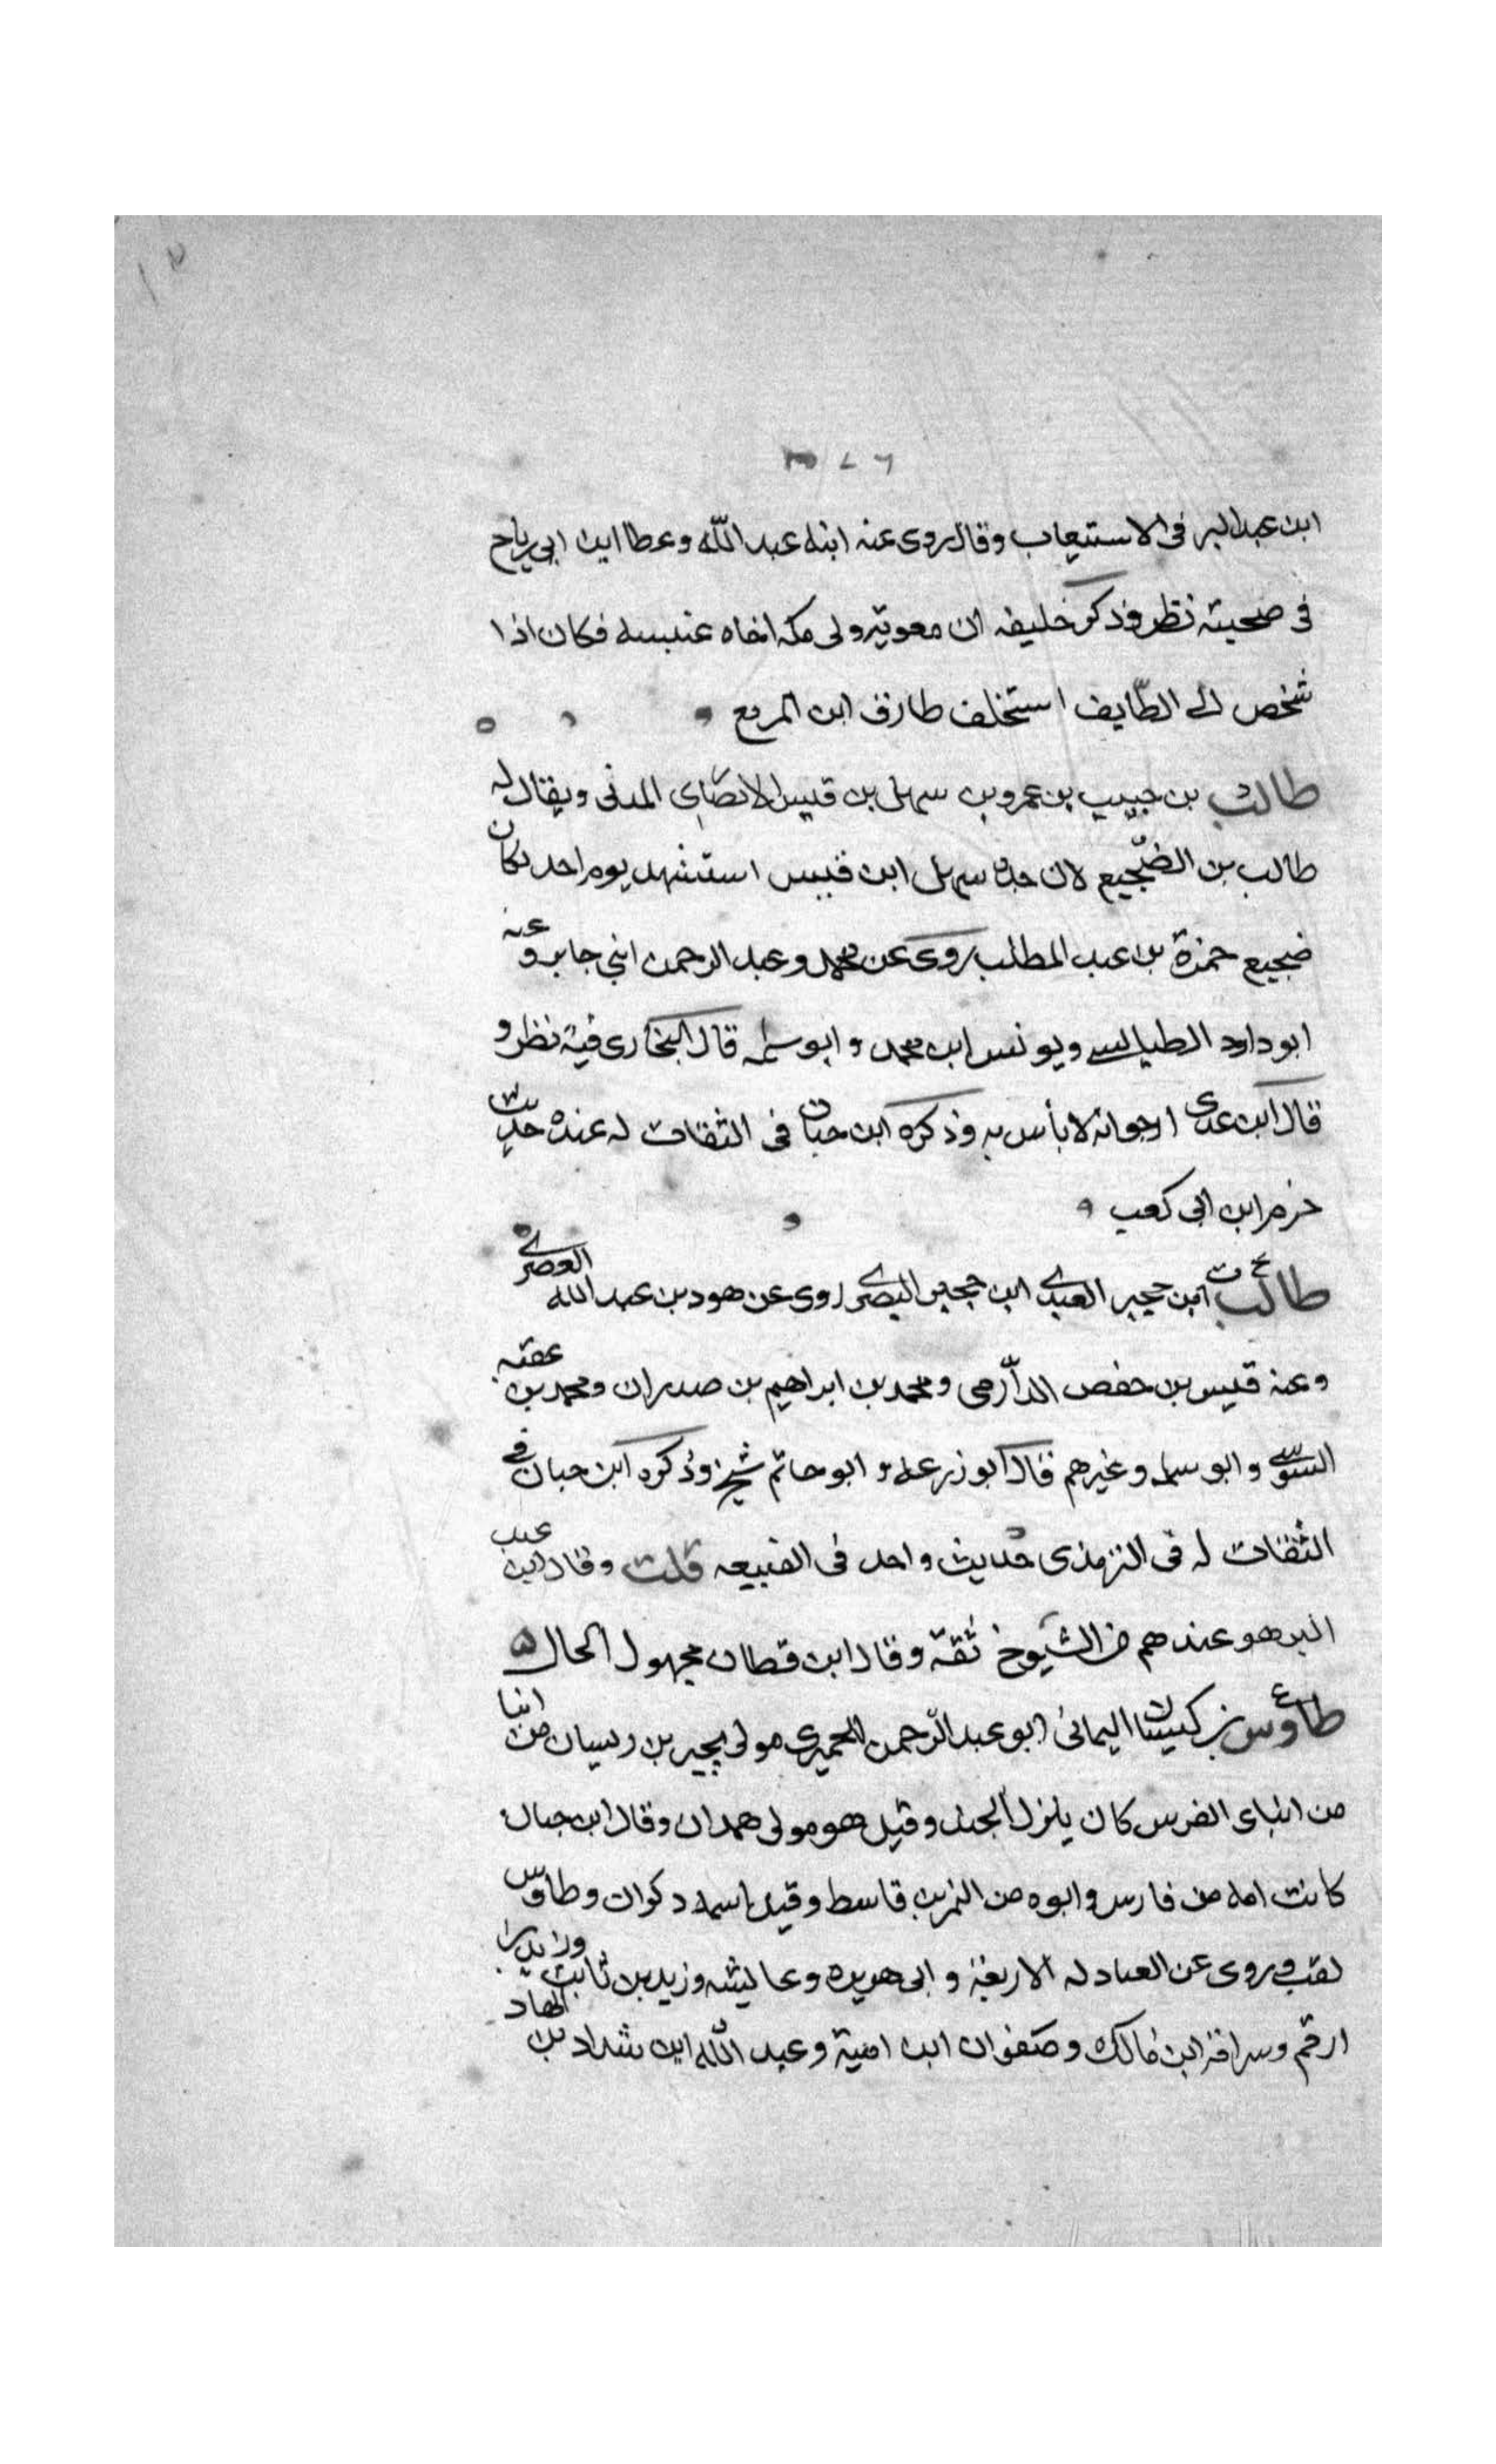 ٣٧٦
ابن عبد البر فى الاستيعاب وقال روى عنه ابنه عبد الله وعطا ابن ابى رباح
فى صحبته نظر وذكر خليفه ان معوية ولى مكه اخاه عنبسه فكان اذا
شخص الى الطّايف استخلف طارق ابن المرقع
طالب بن حبيب بن عمرو بن سهل بن قيس الانصاى المدنى ويقال له
طالب بن الضّجيع لان جده سهل ابن قيس استشهد يوم احد فكان
ضجيع حمزة بن عبد المطلب روى عن محمد وعبد الرحمن ابني جابر وعنه
ابو داود الطيالسى ويونس ابن محمد وابو سلمه قال البخارى فيه نظر و
قال ابن عدى ارجو انه لا بأس به وذكره ابن حبان فى الثقات له عنده حديث
خزم ابن ابى كعب
طالب ابن حجير العبدى ابن حجير البصرى روى عن هود بن عبد الله العصرى
وعنه قيس بن حفص الدّارمى ومحمد بن ابراهيم بن صدران ومحمد بن عقبه
السّوسى وابو سلمه وغيرهم قال ابو زرعه و ابو حاتم شيخ وذكره ابن حبان فى
الثقات له فى الترمذى حديث واحد فى القبيعه قلت وقال ابن عبد
البر هو عندهم من الشّيوخ ثقة وقال ابن قطان مجهول الحال
طاؤس بن كيسان اليمانى ابو عبد الرّحمن الحميرى مولى بجير بن ريسان من ابنا
من ابناى الفرس كان ينزل الجند وقيل هو مولى همدان وقال ابن حبان
كانت امه من فارس وابوه من النمر بن قاسط وقيل اسمه دكوان وطاوس
لقب وروى عن العباد له الاربعة و ابى هريره وعايشه وزيد بن ثابت وزيد بن
ارقم وسراقة ابن مالك وصفوان ابن امية وعبد اللّه ابن شداد بن الهاد